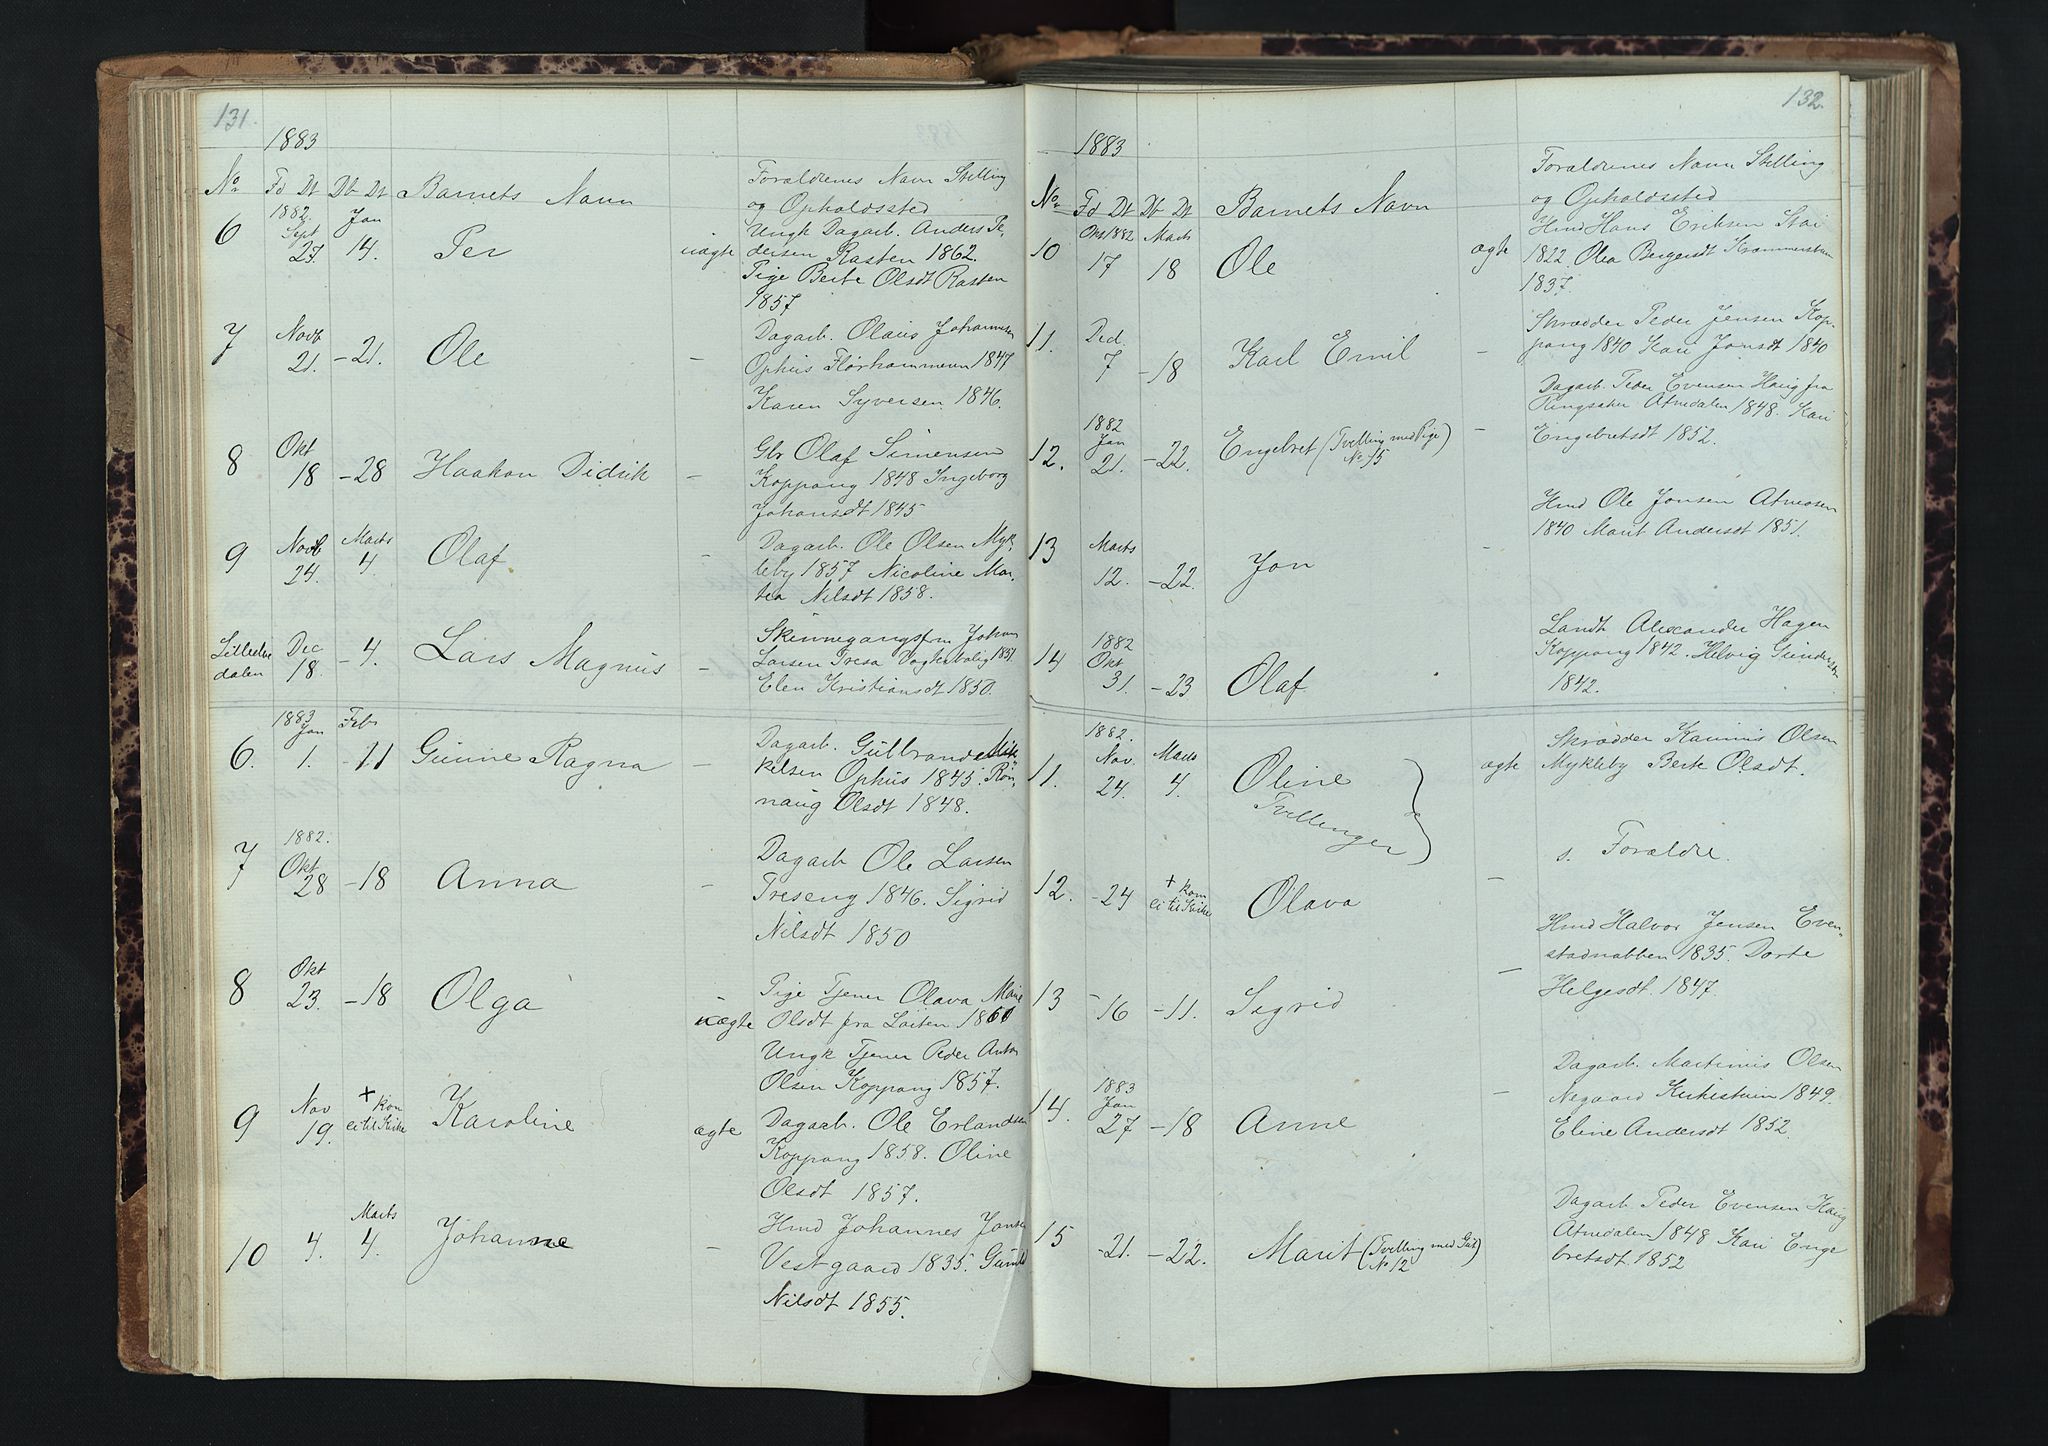 131.
1883
No Fd Dt Db Dt Barnets Navn Forældrenes Navn Stilling
og Opholdssted
6 1882 Sept 27. Jan 14. Per uægte Ungk Dagarb. Anders Pe-
dersen Rasten 1862.
Pige Berte Olsdt Rasten
1857
7 Novb 21. -21. Ole - Dagarb. Olaus Johannesen
Ophus Flørhammeren 1847
Karen Syversen 1846.
8 Okt 18 -28 Haakon Didrik - Gbr Olaf Simensen
Koppang 1848 Ingeborg
Johansdt 1845
9 Novb 24. Marts 4. Olaf. - Dagarb. Ole Olsen Myk-
leby 1857 Nicoline Mar-
tea Nilsdt 1858.
Lilleelve
dalen Dec 18. -4. Lars Magnus - Johan
Larsen Tresa Vogterbolig 1851.
Elen Kristiansdt 1850.
6. 1883 Jan 1. Febr -11 Gunne Ragna - Dagarb. Gulbrand Mik-
kelsen Ophus 1845. Røn-
naug Olsdt 1848.
7 1882. Okt 28 -18 Anna - Dagarb Ole Larsen
Treseng 1846. Sigrid
Nilsdt 1850
8 Okt 23. -18 Olga - uægte Pige Tjener Olava Marie
Olsdt fra Løiten 1860
Ungk Tjener Peder Anton
Olsen Koppang 1857.
9 Nov 19. + kom
ei til Kirke Karoline ægte Dagarb. Ole Erlandsen
Koppang 1858. Oline
Olsdt 1857.
10 4. Marts 4. Johanne - Hmd Johannes Jonsen
Vestgaard 1835.
Nilsdt 1855.
132.
1883
No. Fd Dt Db Dt Barnets Navn Forældrenes Navn Stilling
og Opholdssted
10 Okt 1882 17 Marts 18 Ole ægte Hmd Hans Eriksen Stai
1822. Olea Bergersdt
1837.
11. Ded. 7 -18 Karl Emil - Skrædder Peder Jensen Kop-
pang 1840 Kari Jonsdt 1840
12. 1882 Jan 21. -22. Engebret (Tvilling med Pige
No 15) - Dagarb. Peder Evensen Haug fra
Ringsaker Atnedalen 1848. Kari
Engebretsdt 1852.
13 Marts 12. -22. Jon - Hmd Ole Jonsen Atneosen
1840 Marit Andersdt 1851.
14 1882 Okt 31. -23 Olaf Landh. Alexander Hagen
Koppang 1842. Helvig Gundersdtr
1842.
11. 1882. Nov. 24. Marts 4. Oline
Tvillinger ægte Skrædder Olsen
Mykleby Berte Olsdt.
12. -24 + kom
ei til Kirke Olava - s. Forældre.
13 -16 -11. Sigrid - Hmd Halvor Jensen Even-
stadnabben 1835. Dorte
Helgesdt. 1847.
14. 1883 Jan 27 -18 Anne - Dagarb. Martinus Olsen
Negaard 1849.
Eline Andersdt 1852.
15 -21. -22. Marit (Tvilling med Gut
No 12) Dagarb. Peder Evensen Haug
Atnedalen 1848 Kari Enge
bretsdt 1852